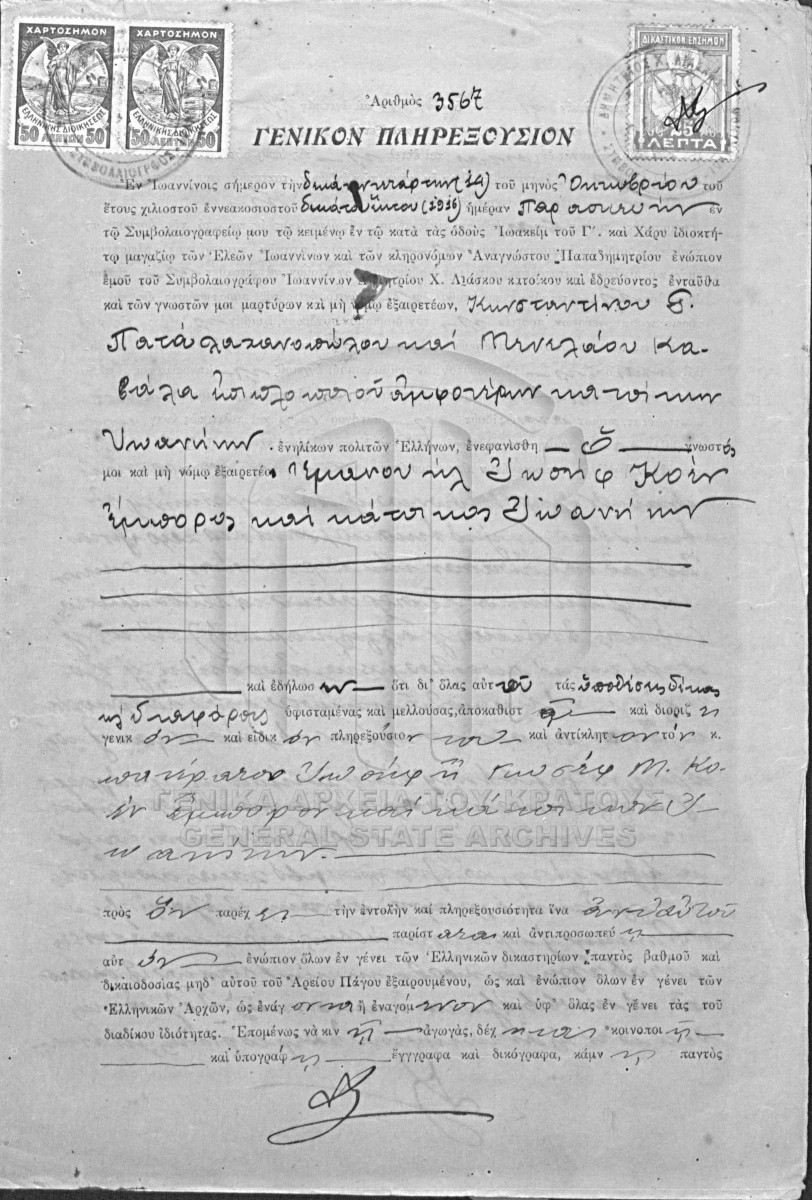 ΧΑΡΤΟΣΗΜΟΝ
ΕΛΛΗΝΙΚΗΣ ΔΙΟΙΚΗΣΕΩΣ
50 ΛΕΠΤΩΝ 50
ΧΑΡΤΟΣΗΜΟΝ
ΕΛΛΗΝΙΚΗΣ ΔΙΟΙΚΗΣΕΩΣ
50 ΛΕΠΤΩΝ 50
ΔΙΚΑΣΤΙΚΟΝ ΕΝΣΗΜΟΝ
ΛΕΠΤΑ
Ἀριθμὸς 3567
ΓΕΝΙΚΟΝ ΠΛΗΡΕΞΟΥΣΙΟΝ
Ἐν Ἰωαννίνοις σήμερον τὴν δεκάτην τετάρτην (14) τοῦ μηνὸς Ὀκτωβρίου τοῦ
ἔτους χιλιοστοῦ ἐννεακοσιοστοῦ δεκάτου ἕκτου (1916) ἡμέραν Παρασκευὴν ἐν
τῷ Συμβολαιογραφείῳ μου τῷ κειμένῳ ἐν τῷ κατὰ τὰς ὁδοὺς Ἰωακεὶμ τοῦ Γ΄. καὶ Χάρυ ἰδιοκτή-
τῳ μαγαζίῳ τῶν Ἐλεῶν Ἰωαννίνων καὶ τῶν κληρονόμων Ἀναγνώστου Παπαδημητρίου ἐνώπιον
ἐμοῦ τοῦ Συμβολαιογράφου Ἰωαννίνων Δημητρίου Χ. Λιάσκου κατοίκου καὶ ἑδρεύοντος ἐνταῦθα
καὶ τῶν γνωστῶν μοι μαρτύρων καὶ μὴ νόμῳ ἐξαιρετέων, Κωνσταντίνου
καὶ Μενελάου Κα-
βάλα ἀμφοτέρων κατοίκων
Ἰωαννίνων. ἐνηλίκων πολιτῶν Ἑλλήνων, ἐνεφανίσθη ὁ γνωστός
μοι καὶ μὴ νόμῳ ἐξαιρετέος Ἐμανουὴλ Ἰωσὴφ Κοὲν
ἔμπορος καὶ κάτοικος Ἰωαννίνων
καὶ ἐδήλωσεν ὅτι δι' ὅλας αὐτοῦ τάς ὑποθέσεις δίκας
καὶ διαφόρους ὑφισταμένας καὶ μελλούσας, ἀποκαθιστᾷ καὶ διορίζει
γενικὸν καὶ εἰδικὸν πληρεξούσιόν του καὶ ἀντίκλητον τόν κ.
πατέρα του Ἰωσὴφ ἢ Γιοσὲφ Μ. Κο-
έν ἔμπορον καὶ κάτοικον Ἰ-
ωαννίνων.
ΓΕΝΙΚΑ ΑΡΧΕΙΑ ΤΟΥ ΚΡΑΤΟΥΣ
GENERAL STATE ARCHIVES
πρὸς ὃν παρέχει τὴν ἐντολὴν καὶ πληρεξουσιότητα ἵνα ἀντ' αὐτοῦ
παρίσταται καὶ ἀντιπροσωπεύῃ
αὐτὸν ἐνώπιον ὅλων ἐν γένει τῶν Ἑλληνικῶν δικαστηρίων παντὸς βαθμοῦ καὶ
δικαιοδοσίας μηδ' αὐτοῦ τοῦ Ἀρείου Πάγου ἐξαιρουμένου, ὡς καὶ ἐνώπιον ὅλων ἐν γένει τῶν
Ἑλληνικῶν Ἀρχῶν, ὡς ἐνάγοντα ἢ ἐναγόμενον καὶ ὑφ' ὅλας ἐν γένει τὰς τοῦ
διαδίκου ἰδιότητας. Ἑπομένως νὰ κινῇ ἀγωγάς, δέχηται κοινοποιῇ
καὶ ὑπογράφῃ ἔγγραφα καὶ δικόγραφα, κάμνῃ παντὸς